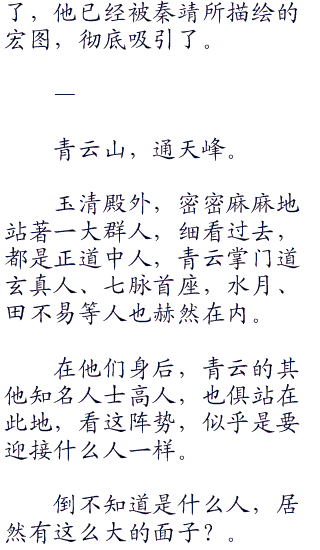 了，他已经被秦靖所描绘的
宏图，彻底吸引了。
—
青云山，通天峰。
玉清殿外，密密麻麻地
站著一大群人，细看过去，
都是正道中人，青云掌门道
玄真人、七脉首座，水月、
田不易等人也赫然在内。
在他们身后，青云的其
他知名人士高人，也俱站在
此地，看这阵势，似乎是要
迎接什么人一样。
倒不知道是什么人，居
然有这么大的面子？。